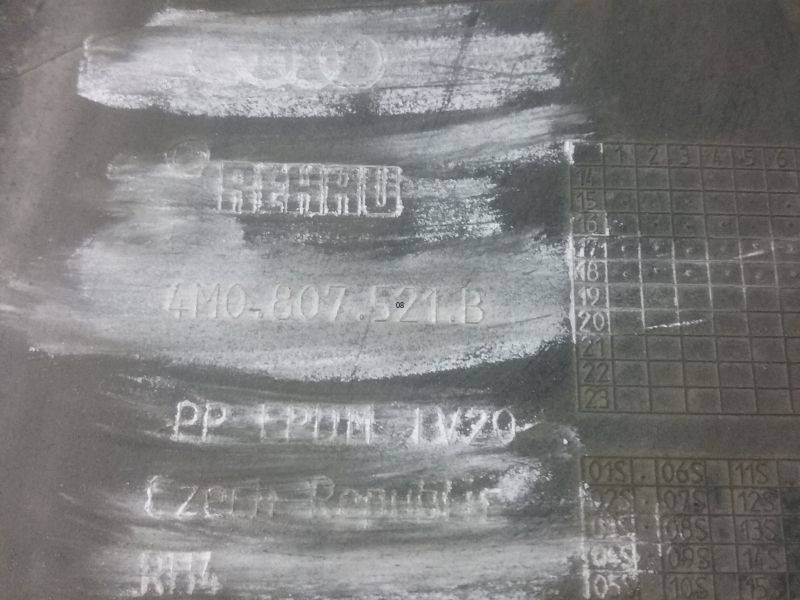 REHAU
4M0.807.521.B
08
PP EPDM TV20
Czech Republic
RM4
1 2 3 4 5 6
14
15
16
17
18
19
20
21
22
23
01S 06S 11S
02S 07S 12S
03S 08S 13S
04S 09S 14S
05S 10S 15S